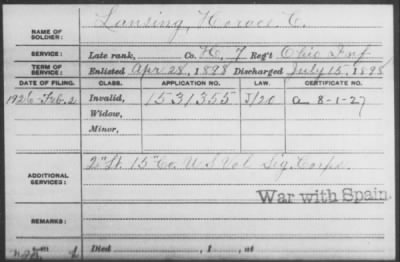 NAME OF SOLDIER: Lansing, Horace C.
SERVICE: Late rank, Co. H, 7 Reg't Ohio Inf
TERM OF SERVICE: Enlisted Apr 28, 1898 Discharged July 15, 1898
DATE OF FILING. CLASS. APPLICATION NO. LAW. CERTIFICATE NO.
1926 Feb. 2 Invalid, 1531355 J/20 a 8-1-27
Widow,
Minor,
ADDITIONAL SERVICES: 2" Lt. 15" Co. U S Vol Sig. Corps.
War with Spain.
REMARKS:
Died , 1 , at